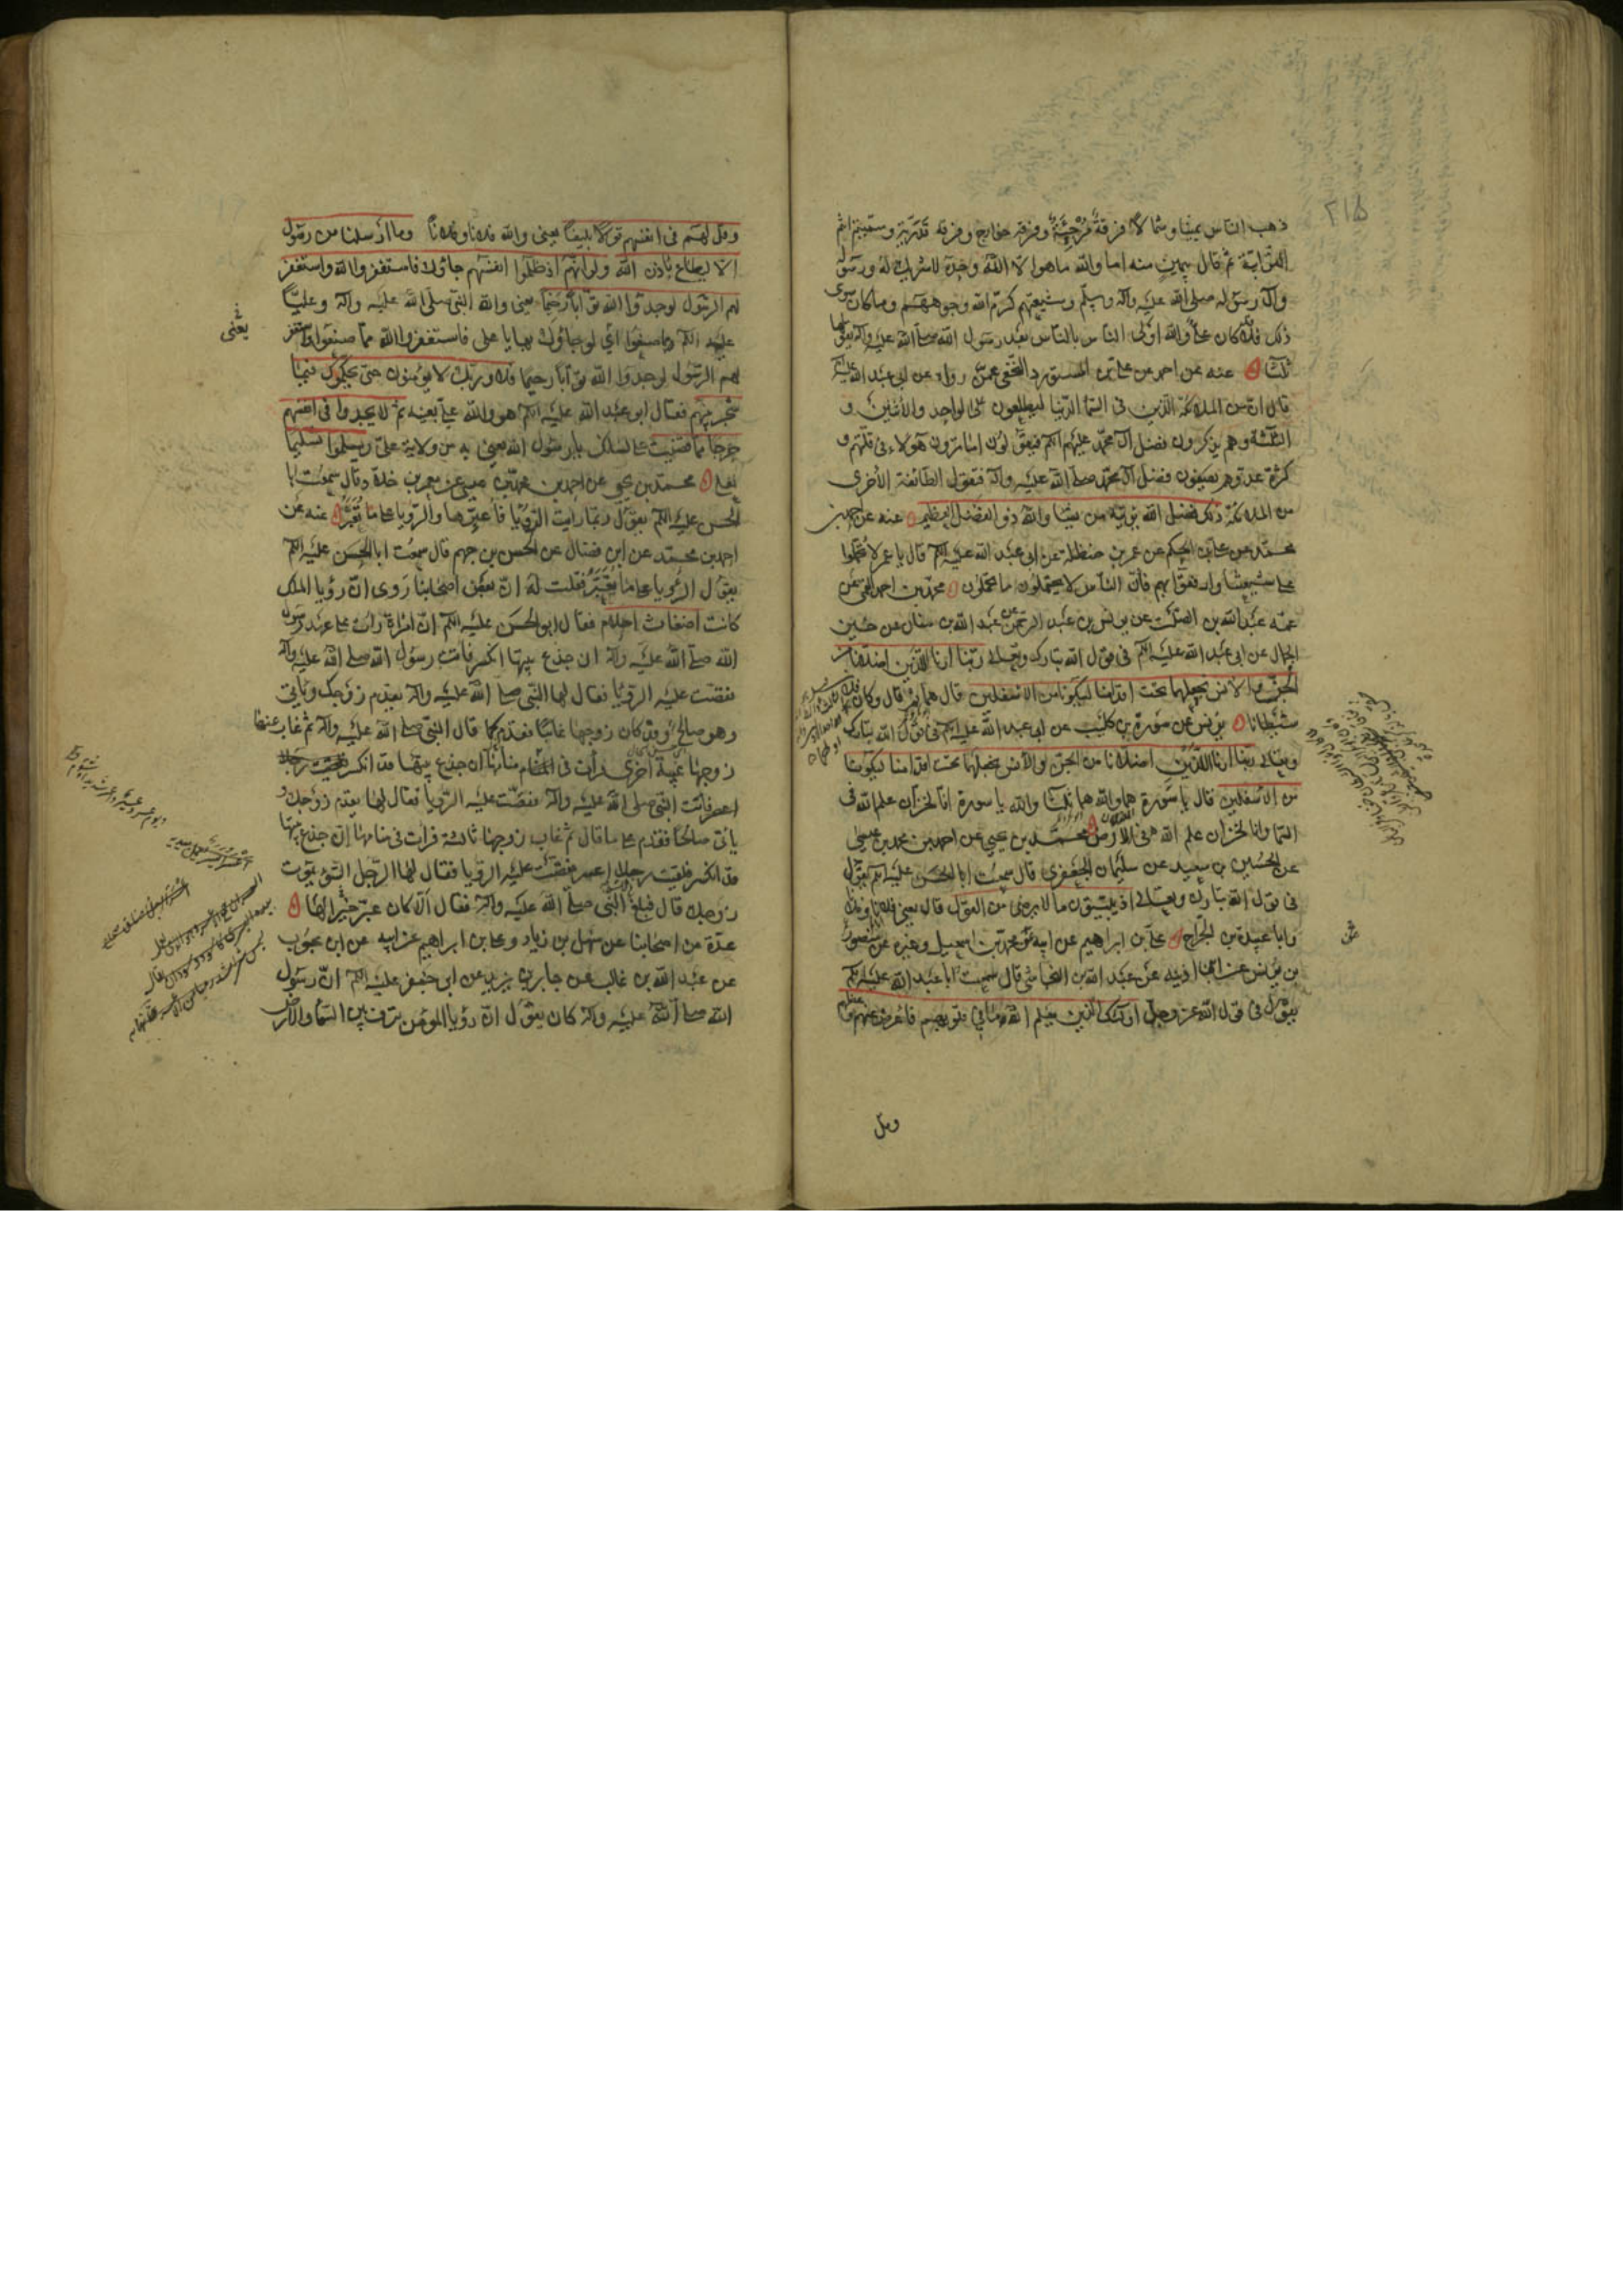 ٢١٥
ذهب الناس يمينا وشمالا فرقة مرجئة وفرقة خوارج وفرقة قدرية وسميتم انتم
الترابية ثم قال بيمين منه اما والله ما هو الا الله وحده لا شريك له ورسوله
وآل رسوله صلى الله عليه وآله وسلم وشيعتهم كرم الله وجوههم وما كان سوى
ذلك فلا كان علي والله اولى الناس بالناس بعد رسول الله صلى الله عليه وآله يقولها
ثلثا عنه عن احمد عن علي بن المستورد النخعي عمن رواه عن ابي عبد الله عليه السلم
قال ان من الملائكة الذين في السما الدنيا ليطلعون على الواحد والاثنين و
الثلثة وهم يذكرون فضل آل محمد عليهم السلم فيقولون اما ترون هولاء في قلتهم و
كثرة عدوهم يصفون فضل آل محمد صلى الله عليه وآله فتقول الطائفة الاخرى
من الملائكة ذلك فضل الله يؤتيه من يشا والله ذو الفضل العظيم عنه عن احمد بن
محمد عن علي بن الحكم عن عمر بن حنظلة عن ابي عبد الله عليه السلم قال يا عمر لا تحملوا
على شيعتنا وارفقوا بهم فان الناس لا يحتملون ما تحملون محمد بن احمد القمي عن
عمه عبد الله بن الصلت عن يونس بن عبد الرحمن عن عبد الله بن سنان عن حسين
الجمال عن ابي عبد الله عليه السلم في قول الله تبارك وتعالى ربنا ارنا اللذين اضلانا من
الجن والانس نجعلهما تحت اقدامنا ليكونا من الاسفلين قال هما ثم قال وكان فلان
شيطانا يونس عن سورة بن كليب عن ابي عبد الله عليه السلم في قول الله تبارك
وتعالى ربنا ارنا اللذين اضلانا من الجن والانس نجعلهما تحت اقدامنا ليكونا
من الاسفلين قال يا سورة هما والله هما ثلثا والله يا سورة انا لخزان علم الله في
السما وانا لخزان علم الله في الارض محمد بن يحيى عن احمد بن محمد بن عيسى
عن الحسين بن سعيد عن سليمان الجعفري قال سمعت ابا الحسن عليه السلم يقول
في قول الله تبارك وتعالى اذ يبيتون ما لا يرضى من القول قال يعني فلانا وفلانا
وابا عبيدة بن الجراح علي بن ابراهيم عن ابيه ومحمد بن اسمعيل وغيره عن منصور
بن يونس عن ابن اذينه عن عبد الله بن النجاشي قال سمعت ابا عبد الله عليه السلم
يقول في قول الله عز وجل اولئك الذين يعلم الله ما في قلوبهم فاعرض عنهم وعظهم
وقل
وقل لهم في انفسهم قولا بليغا يعني والله فلانا وفلانا وما ارسلنا من رسول
الا ليطاع باذن الله ولو انهم اذ ظلموا انفسهم جاؤك فاستغفروا الله واستغفر
لهم الرسول لوجدوا الله توابا رحيما يعني والله النبي صلى الله عليه وآله وعليا
عليه السلم مما صنعوا اي لو جاؤك بها يا علي فاستغفروا الله مما صنعوا واستغفر
لهم الرسول لوجدوا الله توابا رحيما فلا وربك لا يؤمنون حتى يحكموك فيما
شجر بينهم فقال ابو عبد الله عليه السلم هو والله علي بعينه ثم لا يجدوا في انفسهم
حرجا مما قضيت على لسانك يا رسول الله يعني به من ولاية علي ويسلموا تسليما
لعلي محمد بن يحيى عن احمد بن محمد بن عيسى عن معمر بن خلاد قال سمعت ابا
الحسن عليه السلم يقول ربما رايت الرؤيا فاعبرها والرؤيا على ما تعبر عنه عن
احمد بن محمد عن ابن فضال عن الحسن بن جهم قال سمعت ابا الحسن عليه السلم
يقول الرؤيا على ما تعبر فقلت له ان بعض اصحابنا روى ان رؤيا الملك
كانت اضغاث احلام فقال ابو الحسن عليه السلم ان امراة رات على عهد رسول
الله صلى الله عليه وآله ان جذع بيتها انكسر فاتت رسول الله صلى الله عليه وآله
فقصت عليه الرؤيا فقال لها النبي صلى الله عليه وآله يقدم زوجك وياتي
وهو صالح وقد كان زوجها غايبا فقدم كما قال النبي صلى الله عليه وآله ثم غاب عنها
زوجها غيبة اخرى فرات في المنام كان جذع بيتها قد انكسر
فاتت النبي صلى الله عليه وآله فقصت عليه الرؤيا فقال لها يقدم زوجك و
ياتي صالحا فقدم على ما قال ثم غاب زوجها ثالثة فرات في منامها ان جذع بيتها
قد انكسر فلقيت رجلا اعسر فقصت عليه الرؤيا فقال لها الرجل السوء يموت
زوجك قال فبلغ النبي صلى الله عليه وآله فقال الا كان عبر لها خيرا
عدة من اصحابنا عن سهل بن زياد وعلي بن ابراهيم عن ابيه عن ابن محبوب
عن عبد الله بن غالب عن جابر بن يزيد عن ابي جعفر عليه السلم ان رسول
الله صلى الله عليه وآله كان يقول ان رؤيا المؤمن ترف بين السما والارض
يعني